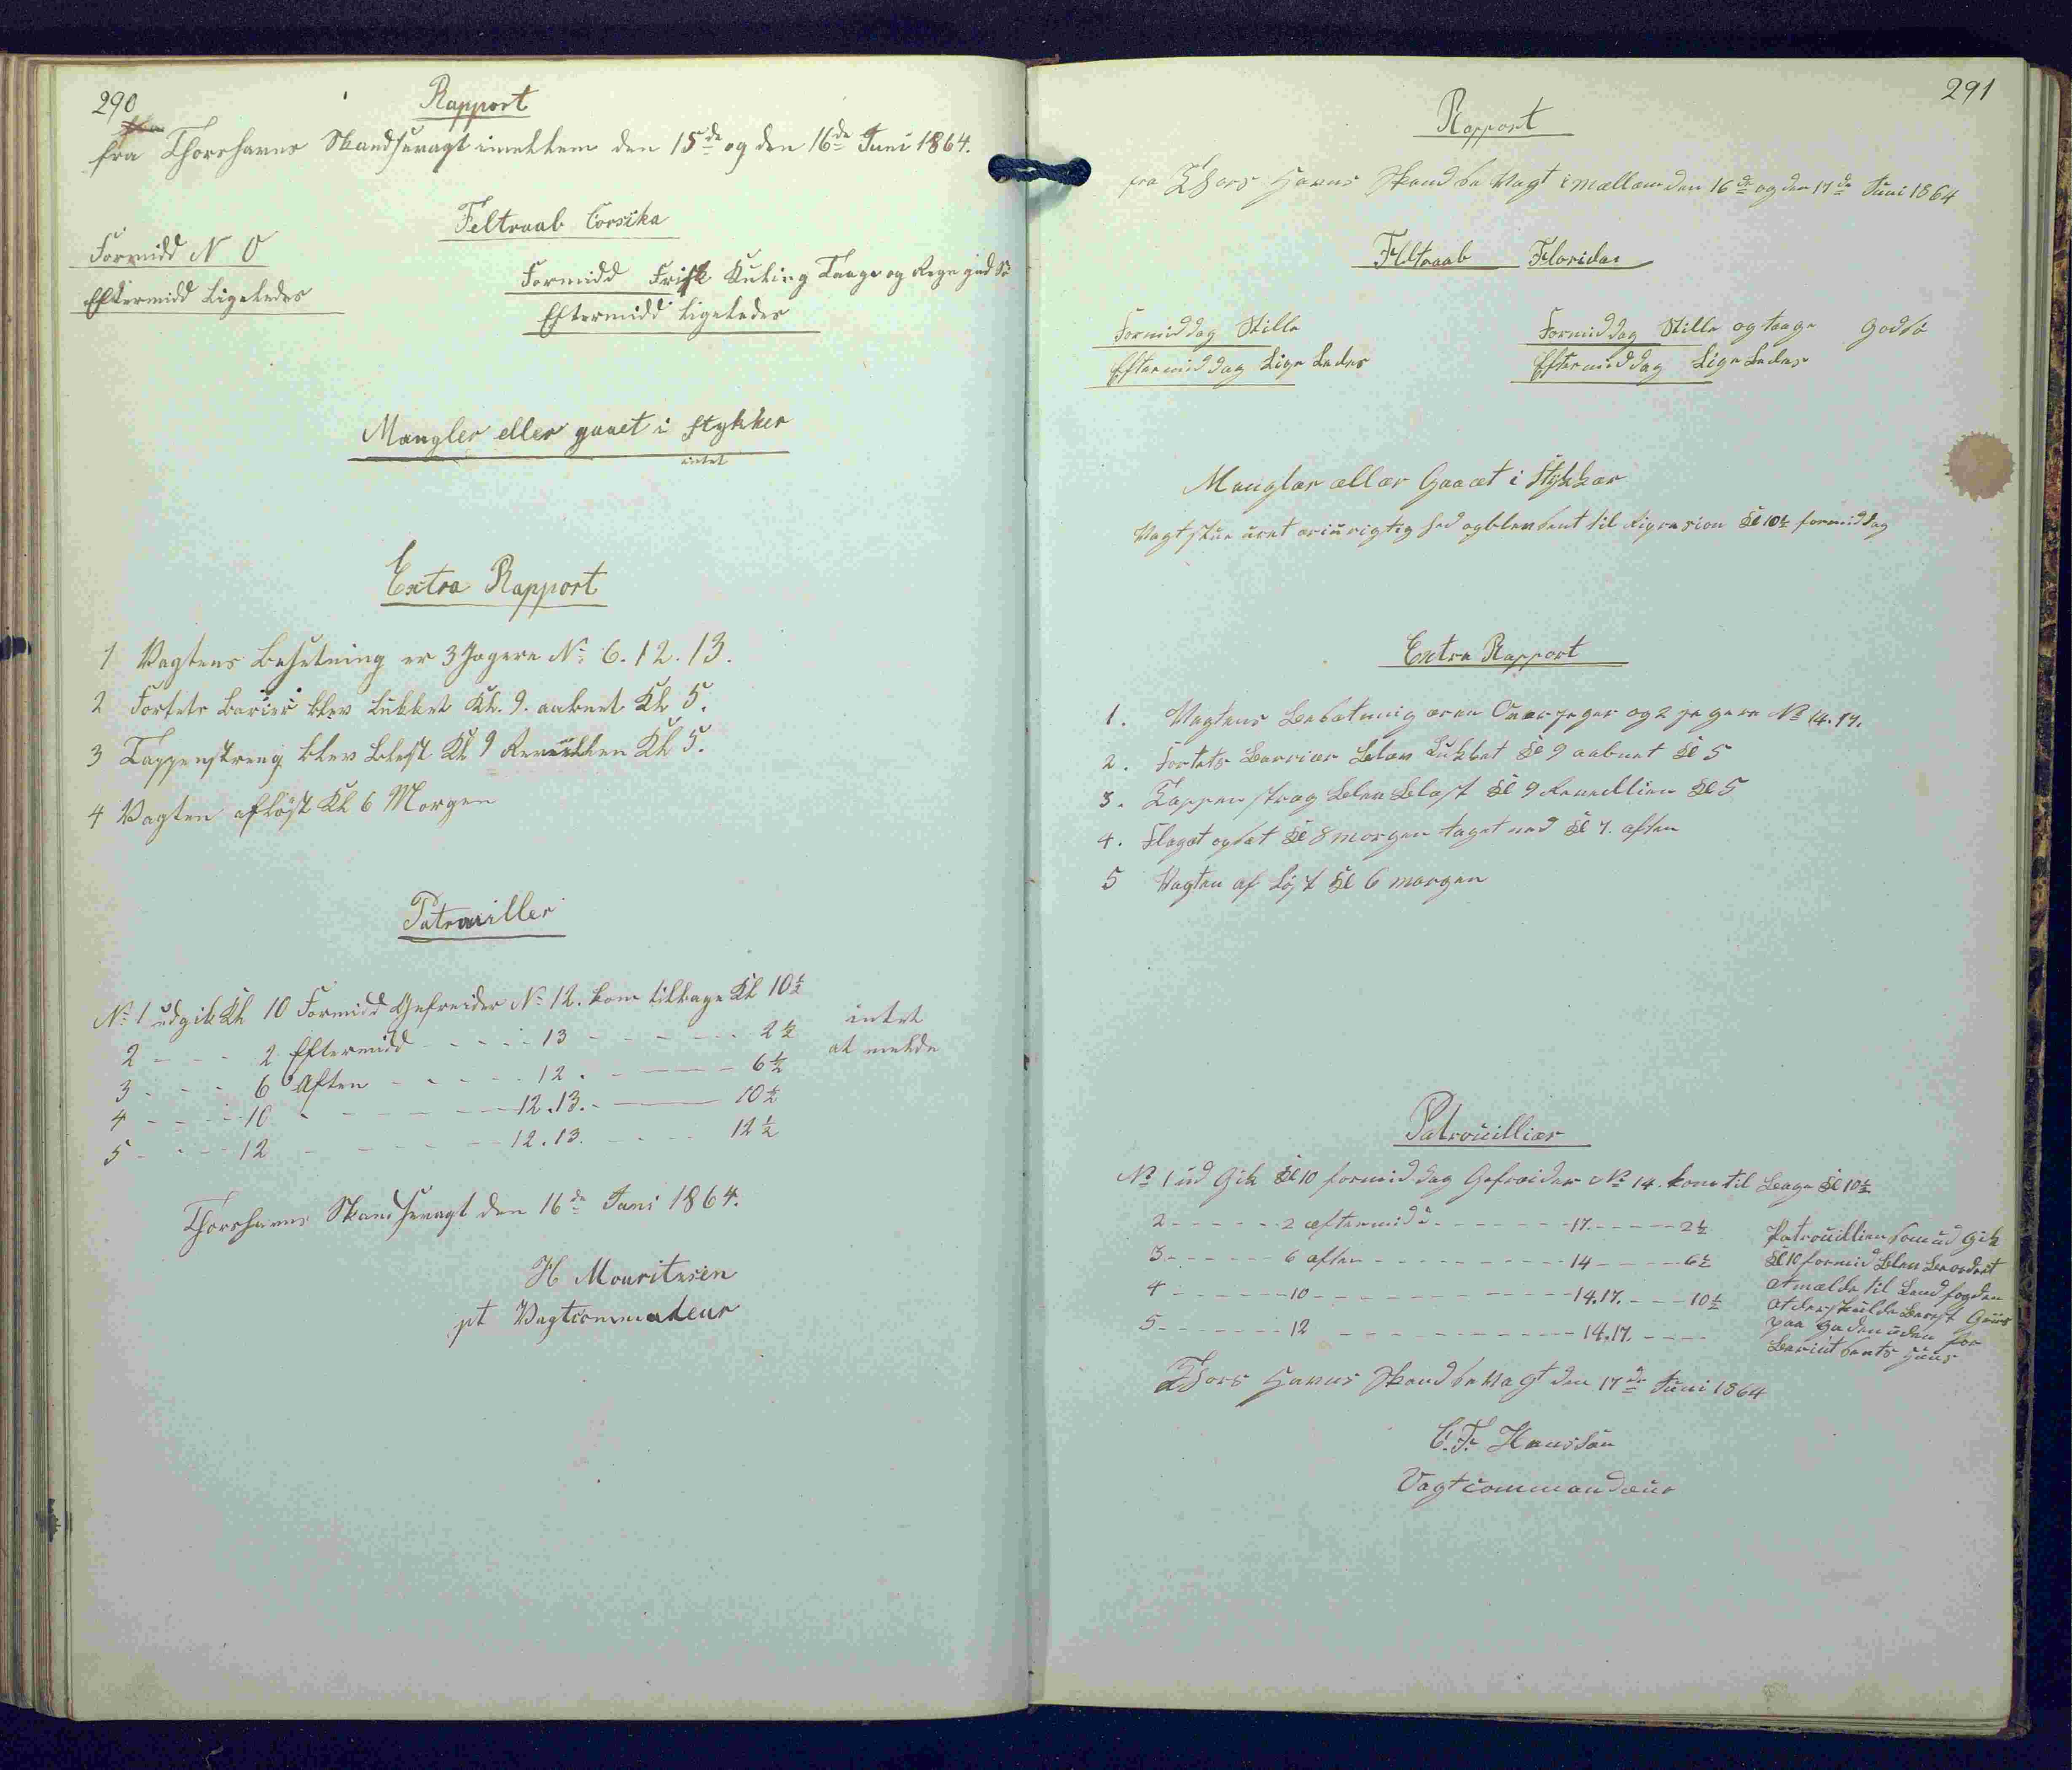 290
Rapport
fra Thorshavns Skandsevagt imellem den 15de og den 16de Juni 1864.
Feltraab Corsika
Formidd N O
Eftermidd Ligeledes
Formidd Frisk Kuling Taage og Regn god Sö
Eftermidd Ligeledes
Mangler eller gaaet i Stykker
intet
Extra Rapport
1 Vagtens Besetning er 3 Jægere No 6. 12. 13.
2 Fortets Barier blev lukket Kl. 9. aabnet Kl 5.
3 Tappenstreng blev blest Kl 9 Revellien Kl 5.
4 Vagten afløst Kl 6 Morgen
Patrouiller
No 1 udgik Kl 10 Formidd Gefreider No 12. kom tilbage Kl 10½
2 - - - 2 Eftermidd - - - - - 13 - - - - - - 2½
3 - - - 6 Aften - - - - - 12. - - - - - 6½
4 - - - 10 - - - - - - 12.13. - - - 10½
5 - - - 12 - - - - - 12.13. - - - - 12½
intet
at melde
Thorshavns Skandsevagt den 16de Juni 1864.
H Mouritzsen
pt Vagtcommadeur
291
Rapport
fra Thors Havns Skandse Vagt i mællem den 16de og den 17de Juni 1864
Feltraab Florida
Formiddag Stille
Eftermiddag Lige Ledes
Formiddag Stille og taage God Sø
Eftermiddag Lige Ledes
Manglær ællær Gaaæt i Stykkær
Vagt stue uret er i urigtighed og blev sent til Kl 10½ formiddag
Extra Rapport
1. Vagtens Besætning æren Overjeger og 2 jegere No 14.17.
2. Fortets Barriær blev Lukket Kl 9 aabnet Kl 5
3. Tappenstrag blev blæst Kl 9 Revellien Kl 5
4. Flaget opsat Kl 8 morgen taget ned Kl 7. aften
5 Vagten af Løst Kl 6 morgen
Patrouilliær
No 1 ud Gik Kl 10 formiddag Gefreider No 14. kom til bage Kl 10½
2 - - - - - 2 eftermidd - - - - - - 17. - - - - 2½
3 - - - - - 6 aften - - - - - - - - 14 - - - - 6½
4 - - - - - 10 - - - - - - - - - 14.17. - - - 10½
5 - - - - - 12 - - - - - - - - - 14.17. - - -
Patrouillien som ud Gik
Kl 10 formid blev beordret
at mælde til Landfogden
at der skulde
paa gaden uden for
Huus
Thors Havns Skandse Vagt den 17de Juni 1864
C. F. Hanssen
Vagtcommandeur